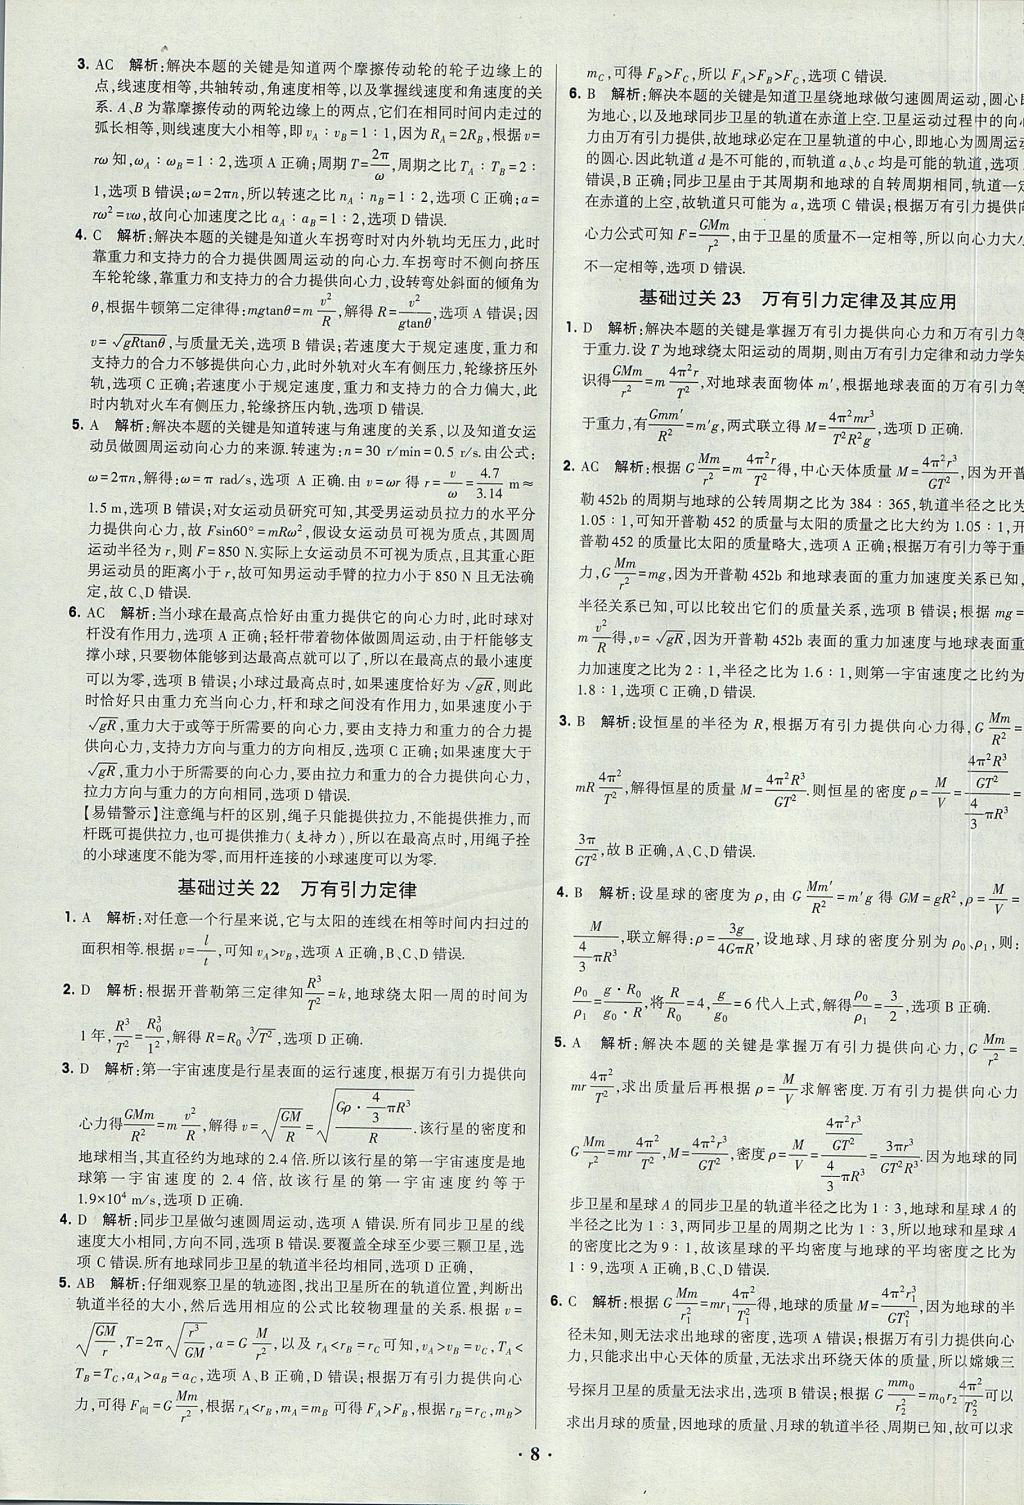 3. AC 解析:解决本题的关键是知道两个摩擦传动轮的轮子边缘上的
点,线速度相等,共轴转动,角速度相等,以及掌握线速度和角速度的关
系. A、B 为靠摩擦传动的两轮边缘上的两点,它们在相同时间内走过的
弧长相等,则线速度大小相等,即 v_A∶v_B=1∶1,因为 R_A=2R_B,根据 v=
rω 知,ω_A∶ω_B=1∶2,选项 A 正确;周期 T=2π/ω,周期之比 T_A∶T_B=2∶
1,选项 B 错误;ω=2πn,所以转速之比 n_A∶n_B=1∶2,选项 C 正确;a=
rω²=vω,故向心加速度之比 a_A∶a_B=1∶2,选项 D 错误.
4. C 解析:解决本题的关键是知道火车拐弯时对内外轨均无压力,此时
靠重力和支持力的合力提供圆周运动的向心力.车拐弯时不侧向挤压
车轮轮缘,靠重力和支持力的合力提供向心力,设转弯处斜面的倾角为
θ,根据牛顿第二定律得:mgtanθ=m v²/R,解得 R=v²/(gtanθ),选项 A 错误;因
v=√(gRtanθ),与质量无关,选项 B 错误;若速度大于规定速度,重力和
支持力的合力不够提供向心力,此时外轨对火车有侧压力,轮缘挤压外
轨,选项 C 正确;若速度小于规定速度,重力和支持力的合力偏大,此
时内轨对火车有侧压力,轮缘挤压内轨,选项 D 错误.
5. A 解析:解决本题的关键是知道转速与角速度的关系,以及知道女运
动员做圆周运动向心力的来源.转速为:n=30 r/min=0.5 r/s.由公式:
ω=2πn,解得:ω=π rad/s,选项 A 正确.由 v=ωr 得 r=v/ω=4.7/3.14 m≈
1.5 m,选项 B 错误;对女运动员研究可知,其受男运动员拉力的水平分
力提供向心力,故 Fsin60°=mRω²,假设女运动员可视为质点,其圆周
运动半径为 r,则 F=850 N.实际上女运动员不可视为质点,且其重心距
男运动员的距离小于 r,故可知男运动员手臂的拉力小于 850 N 且无法确
定,故 C、D 错误.
6. AC 解析:当小球在最高点恰好由重力提供它的向心力时,此时球对
杆没有作用力,选项 A 正确;轻杆带着物体做圆周运动,由于杆能够支
撑小球,只要物体能够到达最高点就可以了,所以在最高点的最小速度
可以为零,选项 B 错误;小球过最高点时,如果速度恰好为√(gR),则此
时恰好只由重力充当向心力,杆和球之间没有作用力,如果速度小于
√(gR),重力大于或等于所需要的向心力,要由支持力和重力的合力提
供向心力,支持力方向与重力的方向相反,选项 C 正确;如果速度大于
√(gR),重力小于所需要的向心力,要由拉力和重力的合力提供向心力,
拉力方向与重力的方向相同,选项 D 错误.
【易错警示】注意绳与杆的区别,绳子只能提供拉力,不能提供推力,而
杆既可提供拉力,也可提供推力(支持力),所以在最高点时,用绳子拴
的小球速度不能为零,而用杆连接的小球速度可以为零.
基础过关 22 万有引力定律
1. A 解析:对任意一个行星来说,它与太阳的连线在相等时间内扫过的
面积相等.根据 v=l/t,可知 v_A>v_B,选项 A 正确,B、C、D 错误.
2. D 解析:根据开普勒第三定律知 R³/T²=k,地球绕太阳一周的时间为
1 年,R³/T²=R₀³/1²,解得 R=R₀∛(T²),选项 D 正确.
3. D 解析:第一宇宙速度是行星表面的运行速度,根据万有引力提供向
心力得 GMm/R²=m v²/R,解得 v=√(GM/R)=√((Gρ·4/3 πR³)/R).该行星的密度和
地球相当,其直径约为地球的 2.4 倍.所以该行星的第一宇宙速度是地
球第一宇宙速度的 2.4 倍,故该行星的第一宇宙速度约等于
1.9×10⁴ m/s,选项 D 正确.
4. D 解析:同步卫星做匀速圆周运动,选项 A 错误.所有同步卫星的线
速度大小相同,方向不同,选项 B 错误.要覆盖全球至少要三颗卫星,选
项 C 错误.所有地球同步卫星的轨道半径均相同,选项 D 正确,
5. AB 解析:仔细观察卫星的轨迹图,找出卫星所在的轨道位置,判断出
轨道半径的大小,然后选用相应的公式比较物理量的关系.根据 v=
√(GM/r),T=2π√(r³/GM),a=G M/r²,以及 r_A<r_B=r_C 可知,v_A>v_B=v_C,T_A<
T_B=T_C,a_A>a_B=a_C,选项 A、B 正确,D 错误;根据万有引力提供向心
力,可得 F向=G Mm/r²,根据 r_A<r_B,m_A=m_B 可得 F_A>F_B,根据 r_B=r_C,m_B>
m_C,可得 F_B>F_C,所以 F_A>F_B>F_C,选项 C 错误.
6. B 解析:解决本题的关键是知道卫星绕地球做匀速圆周运动,圆心即
为地心,以及地球同步卫星的轨道在赤道上空.卫星运动过程中的向心
力由万有引力提供,故地球必定在卫星轨道的中心,即地心为圆周运动
的圆心.因此轨道 d 是不可能的,而轨道 a、b、c 均是可能的轨道,选项
错误,B 正确;同步卫星由于其周期和地球的自转周期相同,轨道一定
在赤道的上空,故轨道只可能为 a,选项 C 错误;根据万有引力提供向
心力公式可知 F=GMm/r²,由于卫星的质量不一定相等,所以向心力大小
不一定相等,选项 D 错误.
基础过关 23 万有引力定律及其应用
1. D 解析:解决本题的关键是掌握万有引力提供向心力和万有引力等
于重力.设 T 为地球绕太阳运动的周期,则由万有引力定律和动力学知
识得 GMm/r²=m 4π²r/T²,对地球表面物体 m′,根据地球表面的万有引力等
于重力,有 Gmm′/R²=m′g,两式联立得 M=4π²mr³/(T²R²g),选项 D 正确.
2. AC 解析:根据 G Mm/r²=m 4π²r/T² 得,中心天体质量 M=4π²r³/GT²,因为开普
勒 452b 的周期与地球的公转周期之比为 384∶365,轨道半径之比为
1.05∶1,可知开普勒 452 的质量与太阳的质量之比大约为 1.05∶1,开
普勒 452 的质量比太阳的质量略大,选项 A 正确;根据万有引力等于重
力,G Mm/r²=mg,因为开普勒 452b 和地球表面的重力加速度关系已知,
半径关系已知,可以比较出它们的质量关系,选项 B 错误;根据 mg=
m v²/R 得,v=√(gR),因为开普勒 452b 表面的重力加速度与地球表面重
力加速度之比为 2∶1,半径之比为 1.6∶1,则第一宇宙速度之比约为
1.8∶1,选项 C 正确,D 错误.
3. B 解析:设恒星的半径为 R,根据万有引力提供向心力得,G Mm/R²=
mR 4π²/T²,解得恒星的质量 M=4π²R³/GT².则恒星的密度 ρ=M/V=(4π²R³/GT²)/(4/3 πR³)=
3π/GT²,故 B 正确,A、C、D 错误.
4. B 解析:设星球的密度为 ρ,由 G Mm′/R²=m′g 得 GM=gR²,ρ=M/V=
M/(4/3 πR³),联立解得:ρ=3g/(4GπR),设地球、月球的密度分别为 ρ₀、ρ₁,则:
ρ₀/ρ₁=(g·R₀)/(g₀·R),将 R/R₀=4,g/g₀=6 代人上式,解得 ρ₀/ρ₁=3/2,选项 B 正确.
5. A 解析:解决本题的关键是掌握万有引力提供向心力,G Mm/r²=
mr 4π²/T²,求出质量后再根据 ρ=M/V 求解密度.万有引力提供向心力
G Mm/r²=mr 4π²/T²,M=4π²r³/GT²,密度 ρ=M/V=(4π²r³/GT²)/(4/3 πR³)=3πr³/(GT²R³).因为地球的同
步卫星和星球 A 的同步卫星的轨道半径之比为 1∶3,地球和星球 A 的
半径之比为 1∶3,两同步卫星的周期之比为 1∶3,所以地球和星球 A
的密度之比为 9∶1,故该星球的平均密度与地球的平均密度之比为
1∶9,选项 A 正确,B、C、D 错误.
6. C 解析:根据 G Mm/r₁²=mr₁ 4π²/T₁² 得,地球的质量 M=4π²r₁³/GT₁²,因为地球的半
径未知,则无法求出地球的密度,选项 A 错误;根据万有引力提供向心
力,只能求出中心天体的质量,无法求出环绕天体的质量,所以嫦娥三
号探月卫星的质量无法求出,选项 B 错误;根据 G mm₀/r₂²=m₀r₂ 4π²/T₂² 可以
求出月球的质量,因地球的质量、月球的轨道半径、周期已知,故可以求
· 8 ·